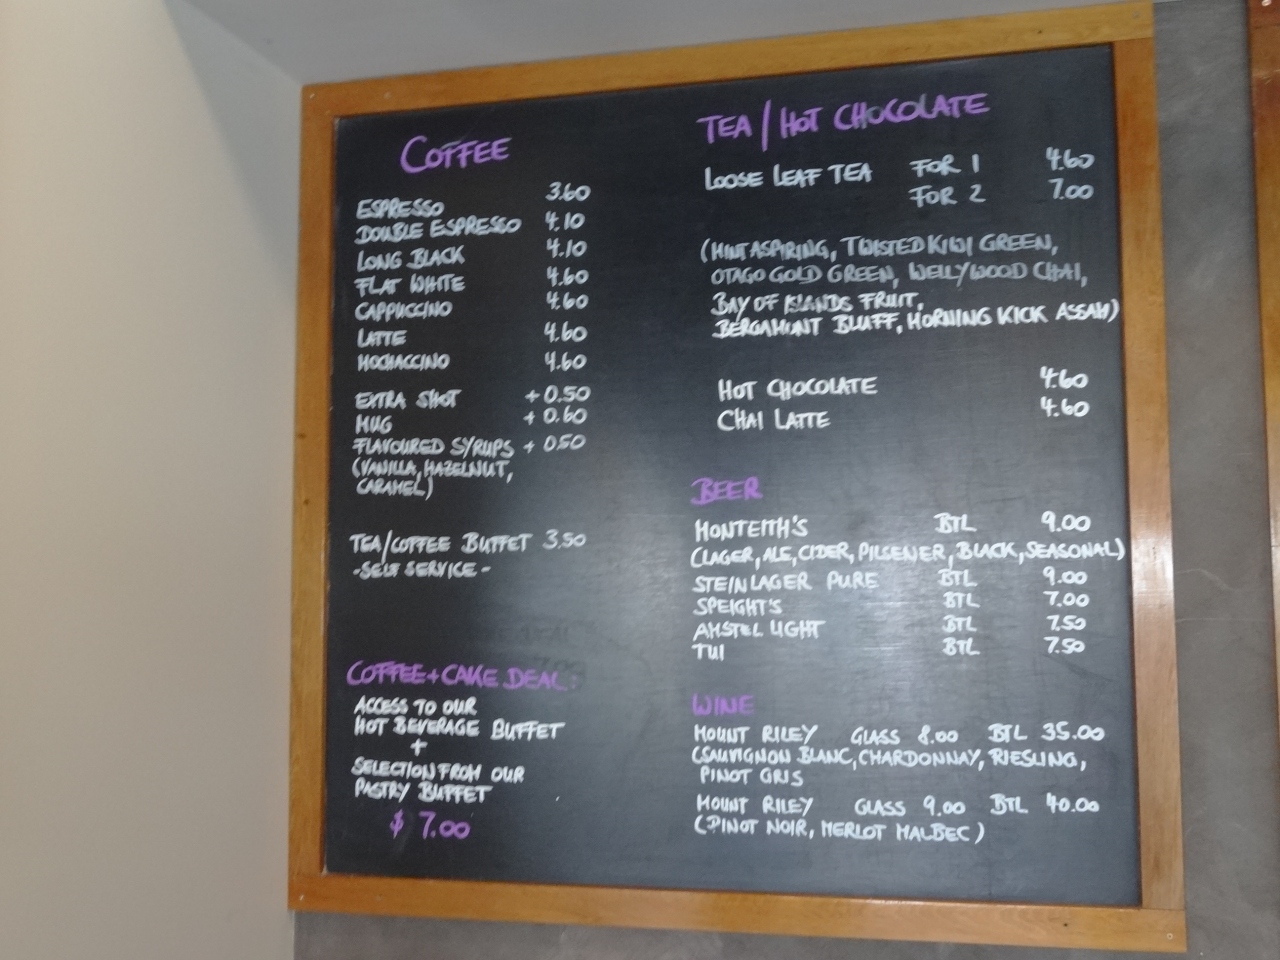 COFFEE
ESPRESSO 3.60
DOUBLE ESPRESSO 4.10
LONG BLACK 4.10
FLAT WHITE 4.60
CAPPUCCINO 4.60
LATTE 4.60
MOCHACCINO 4.60
EXTRA SHOT + 0.50
MUG + 0.60
FLAVOURED SYRUPS + 0.50
(VANILLA, HAZELNUT,
CARAMEL)
TEA/COFFEE BUFFET 3.50
-SELF SERVICE-
COFFEE+CAKE DEAL:
ACCESS TO OUR
HOT BEVERAGE BUFFET
+
SELECTION FROM OUR
PASTRY BUFFET
$ 7.00
TEA/HOT CHOCOLATE
LOOSE LEAF TEA FOR 1 4.60
FOR 2 7.00
(MINT ASPIRING, TWISTED KIWI GREEN,
OTAGO GOLD GREEN, WELLYWOOD CHAI,
BAY OF ISLANDS FRUIT,
BERGAMONT BLUFF, MORNING KICK ASSAM)
HOT CHOCOLATE 4.60
CHAI LATTE 4.60
BEER
MONTEITH'S BTL 9.00
(LAGER, ALE, CIDER, PILSENER, BLACK, SEASONAL)
STEINLAGER PURE BTL 9.00
SPEIGHT'S BTL 7.00
AMSTEL LIGHT BTL 7.50
TUI BTL 7.50
WINE
MOUNT RILEY GLASS 8.00 BTL 35.00
(SAUVIGNON BLANC, CHARDONNAY, RIESLING,
PINOT GRIS
MOUNT RILEY GLASS 9.00 BTL 40.00
(PINOT NOIR, MERLOT MALBEC)